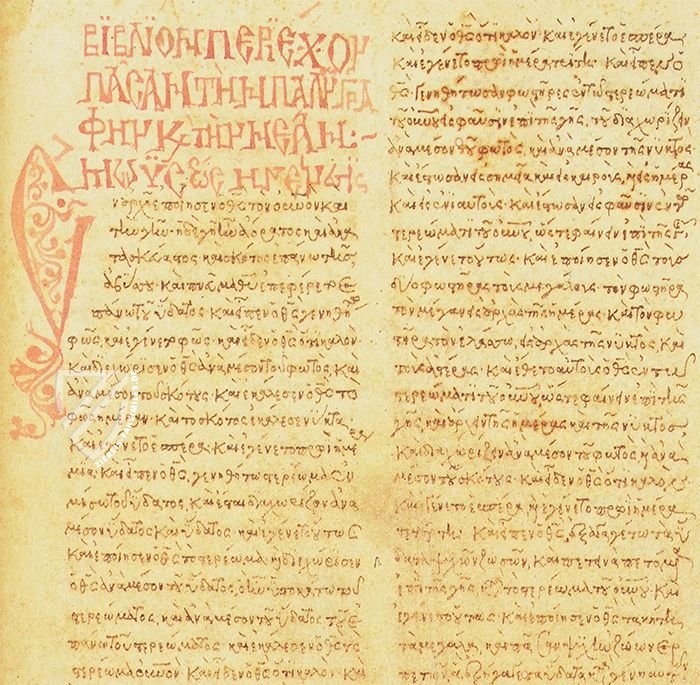 ΒΙΒΛΙΟΝ ΠΕΡΙΕΧΟΝ
ΠΑΣΑΝ ΤΗΝ ΠΑΛ ΓΡΑ
ΦΗΝ Κ ΤΗΝ ΝΕΑΝ:~
ΜΩΥΣΕΩΣ Η ΓΕΝΕΣΙΣ
Ἐν ἀρχῇ ἐποίησεν ὁ θς τὸν οὐνὸν καὶ
τὴν γῆν· ἡ δὲ γῆ ἦν ἀόρατος καὶ ἀκα
τασκεύαστος· καὶ σκότος ἐπάνω τῆς
ἀβύσσου· καὶ πνα θυ ἐπεφέρετο ἐ
πάνω τοῦ ὕδατος· καὶ εἶπεν ὁ θς γενηθήτω
φῶς, καὶ ἐγένετο φῶς· καὶ εἶδεν ὁ θς ὅτι καλόν
καὶ διεχώρισεν ὁ θς ἀνὰ μέσον τοῦ φωτός, καὶ
ἀνὰ μέσον τοῦ σκότους· καὶ ἐκάλεσεν ὁ θς τὸ
φῶς ἡμέραν· καὶ τὸ σκότος ἐκάλεσε νύκτα
καὶ ἐγένετο ἑσπέρα· καὶ ἐγένετο πρωὶ ἡμέρα
μία· καὶ εἶπεν ὁ θς, γενηθήτω στερέωμα ἐν
μέσῳ τοῦ ὕδατος, καὶ ἔσται διαχωρίζον ἀνὰ
μέσον ὕδατος καὶ ὕδατος· καὶ ἐγένετο οὕτως
καὶ ἐποίησεν ὁ θς τὸ στερέωμα, καὶ διεχώρισεν
ὁ θς ἀνὰ μέσον τοῦ ὕδατος, ὃ ἦν ὑποκάτω τοῦ
στερεώματος, καὶ ἀνὰ μέσον τοῦ ὕδατος τοῦ ἐ
πάνω τοῦ στερεώματος· καὶ ἐκάλεσεν ὁ θς τὸ
στερέωμα οὐνόν· καὶ εἶδεν ὁ θς ὅτι καλόν· καὶ
καὶ εἶδεν ὁ θς ὅτι καλόν· καὶ ἐγένετο ἑσπέρα
καὶ ἐγένετο πρωὶ ἡμέρα τρίτη· καὶ εἶπεν ὁ
θς· γενηθήτωσαν φωστῆρες ἐν τῷ στερεώματι
τοῦ οὐνοῦ εἰς φαῦσιν ἐπὶ τῆς γῆς, τοῦ διαχωρίζειν
ἀνὰ μέσον τοῦ φωτός, καὶ ἀνὰ μέσον τῆς νυκτός·
καὶ ἔστωσαν εἰς σημεῖα καὶ εἰς καιρούς, καὶ εἰς ἡμέρας
καὶ εἰς ἐνιαυτούς· καὶ ἔστωσαν εἰς φαῦσιν ἐν τῷ
στερεώματι τοῦ οὐνοῦ, ὥστε φαίνειν ἐπὶ τῆς γῆς
καὶ ἐγένετο οὕτως· καὶ ἐποίησεν ὁ θς τοὺς
δύο φωστῆρας τοὺς μεγάλους· τὸν φωστῆρα
τὸν μέγαν εἰς ἀρχὰς τῆς ἡμέρας· καὶ τὸν φω
στῆρα τὸν ἐλάσσω, εἰς ἀρχὰς τῆς νυκτός· καὶ
τοὺς ἀστέρας· καὶ ἔθετο αὐτοὺς ὁ θς ἐν τῷ
στερεώματι τοῦ οὐνοῦ ὥστε φαίνειν ἐπὶ τῆς
γῆς, καὶ ἄρχειν τῆς ἡμέρας καὶ τῆς νυκτός·
καὶ διαχωρίζειν ἀνὰ μέσον τοῦ φωτός, καὶ ἀνὰ
μέσον τοῦ σκότους· καὶ εἶδεν ὁ θς ὅτι καλόν·
καὶ ἐγένετο ἑσπέρα, καὶ ἐγένετο πρωὶ ἡμέρα
τετάρτη· καὶ εἶπεν ὁ θς· ἐξαγαγέτω τὰ ὕ
δατα ψυχῶν ζωσῶν, καὶ πετεινὰ πετόμενα
ἐπὶ τῆς γῆς, κατὰ τὸ στερέωμα τοῦ οὐνοῦ· καὶ
ἐγένετο οὕτως· καὶ ἐποίησεν ὁ θς τὰ κήτη
τὰ μεγάλα, καὶ πᾶσαν ψυχὴν ζώων ἑρ
πετῶν, ἃ ἐξήγαγε τὰ ὕδατα κατὰ γένη αὐτῶν